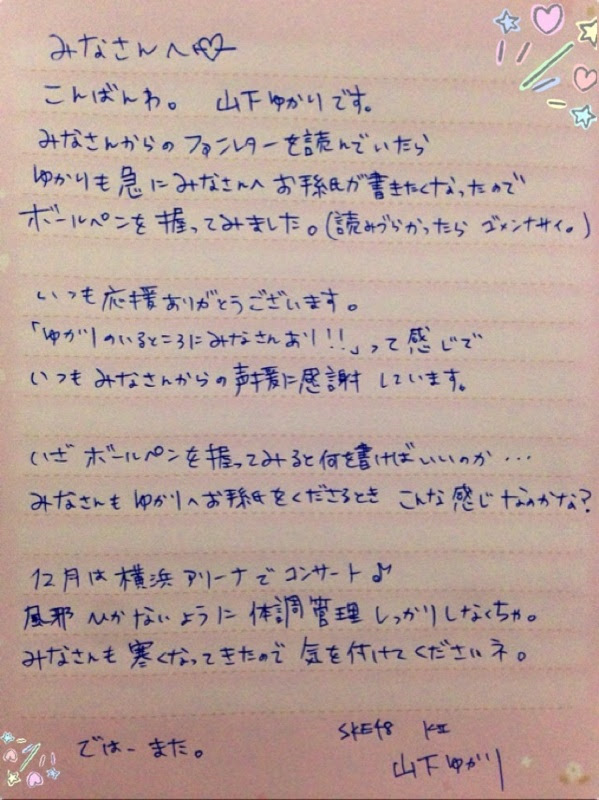 みなさんへ♡
こんばんわ。 山下ゆかりです。
みなさんからのファンレターを読んでいたら
ゆかりも急にみなさんへお手紙が書きたくなったので
ボールペンを握ってみました。(読みづらかったらゴメンナサイ。)
いつも応援ありがとうございます。
「ゆかりのいるところにみなさんあり!!」って感じで
いつもみなさんからの声援に感謝しています。
いざボールペンを握ってみると何を書けばいいのか・・・
みなさんもゆかりへお手紙をくださるときこんな感じなのかな?
12月は横浜アリーナでコンサート♪
風邪ひかないように体調管理しっかりしなくちゃ。
みなさんも寒くなってきたので気を付けてくださいネ。
ではーまた。
SKE48 KⅡ
山下ゆかり